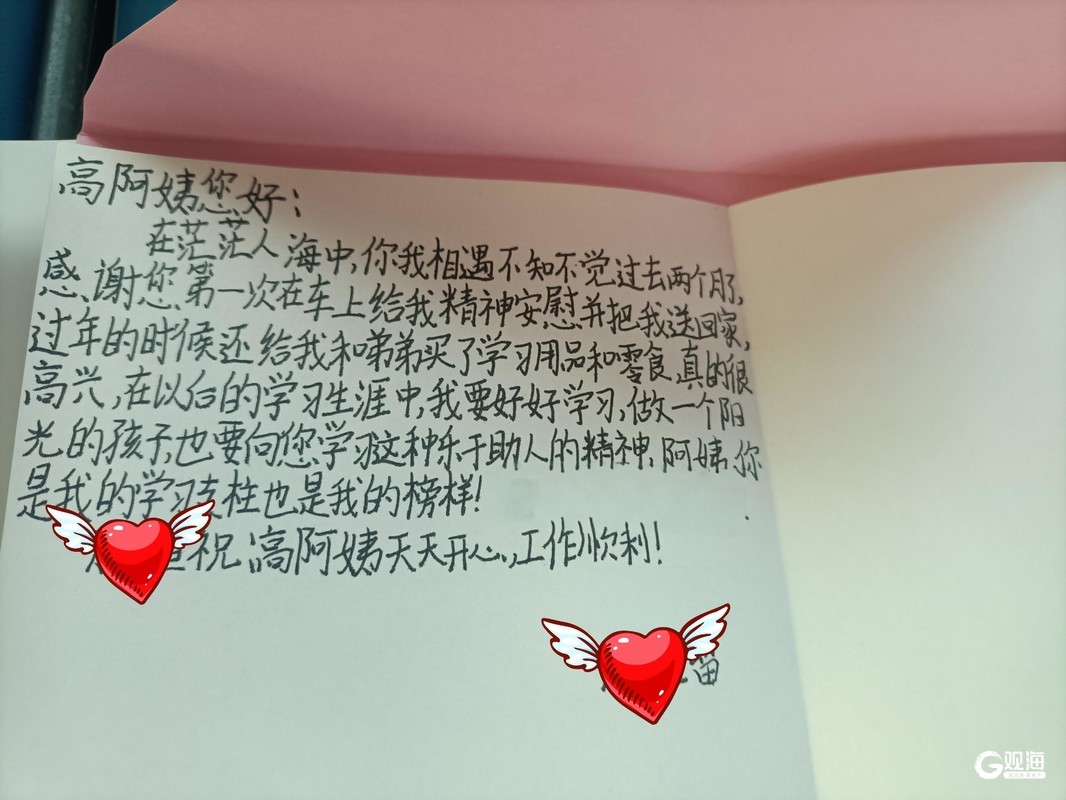 高阿姨您好：
在茫茫人海中，你我相遇不知不觉过去两个月了，
感谢您第一次在车上给我精神安慰并把我送回家，
过年的时候还给我和弟弟买了学习用品和零食，真的很
高兴，在以后的学习生涯中，我要好好学习，做一个阳
光的孩子，也要向您学习这种乐于助人的精神，阿姨，你
是我的学习支柱也是我的榜样！
祝高阿姨天天开心，工作顺利！
留
观海